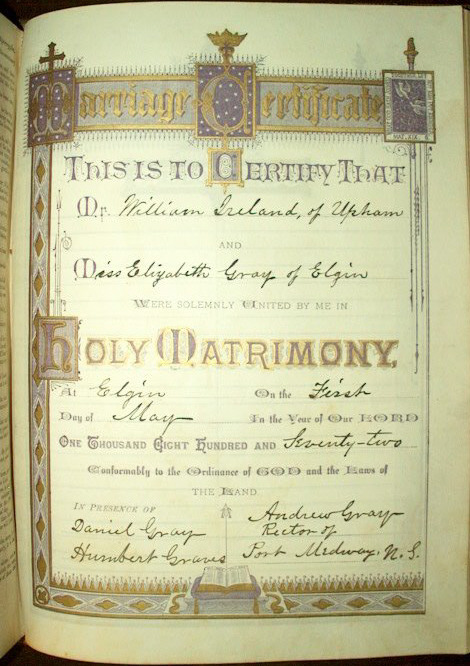 Marriage Certificate
THIS IS TO CERTIFY THAT
Mr. William Ireland, of Upham
AND
Miss Elizabeth Gray of Elgin
WERE SOLEMNLY UNITED BY ME IN
HOLY MATRIMONY,
At Elgin On the First
Day of May In the Year of Our LORD
ONE THOUSAND EIGHT HUNDRED AND Seventy-two
Conformably to the Ordinance of GOD and the Laws of
THE LAND.
IN PRESENCE OF Andrew Gray
Daniel Gray Rector of
Humbert Graves Port Medway, N.S.